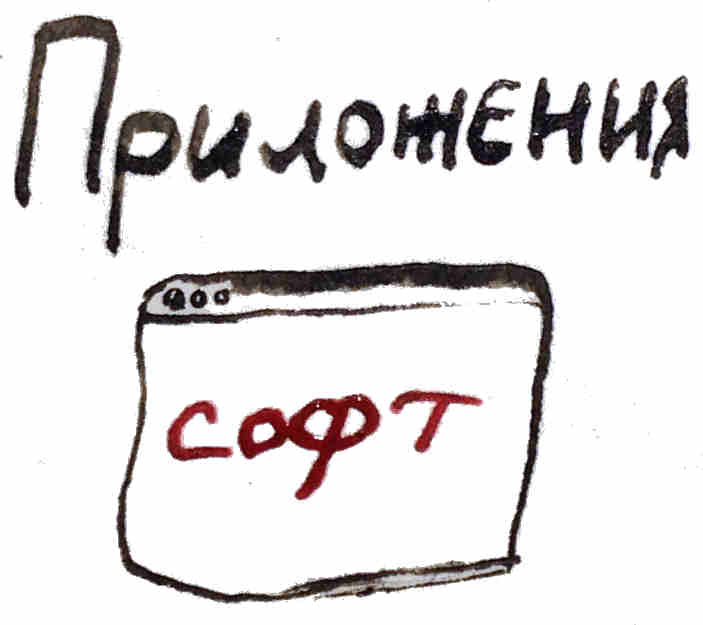 Приложения
софт